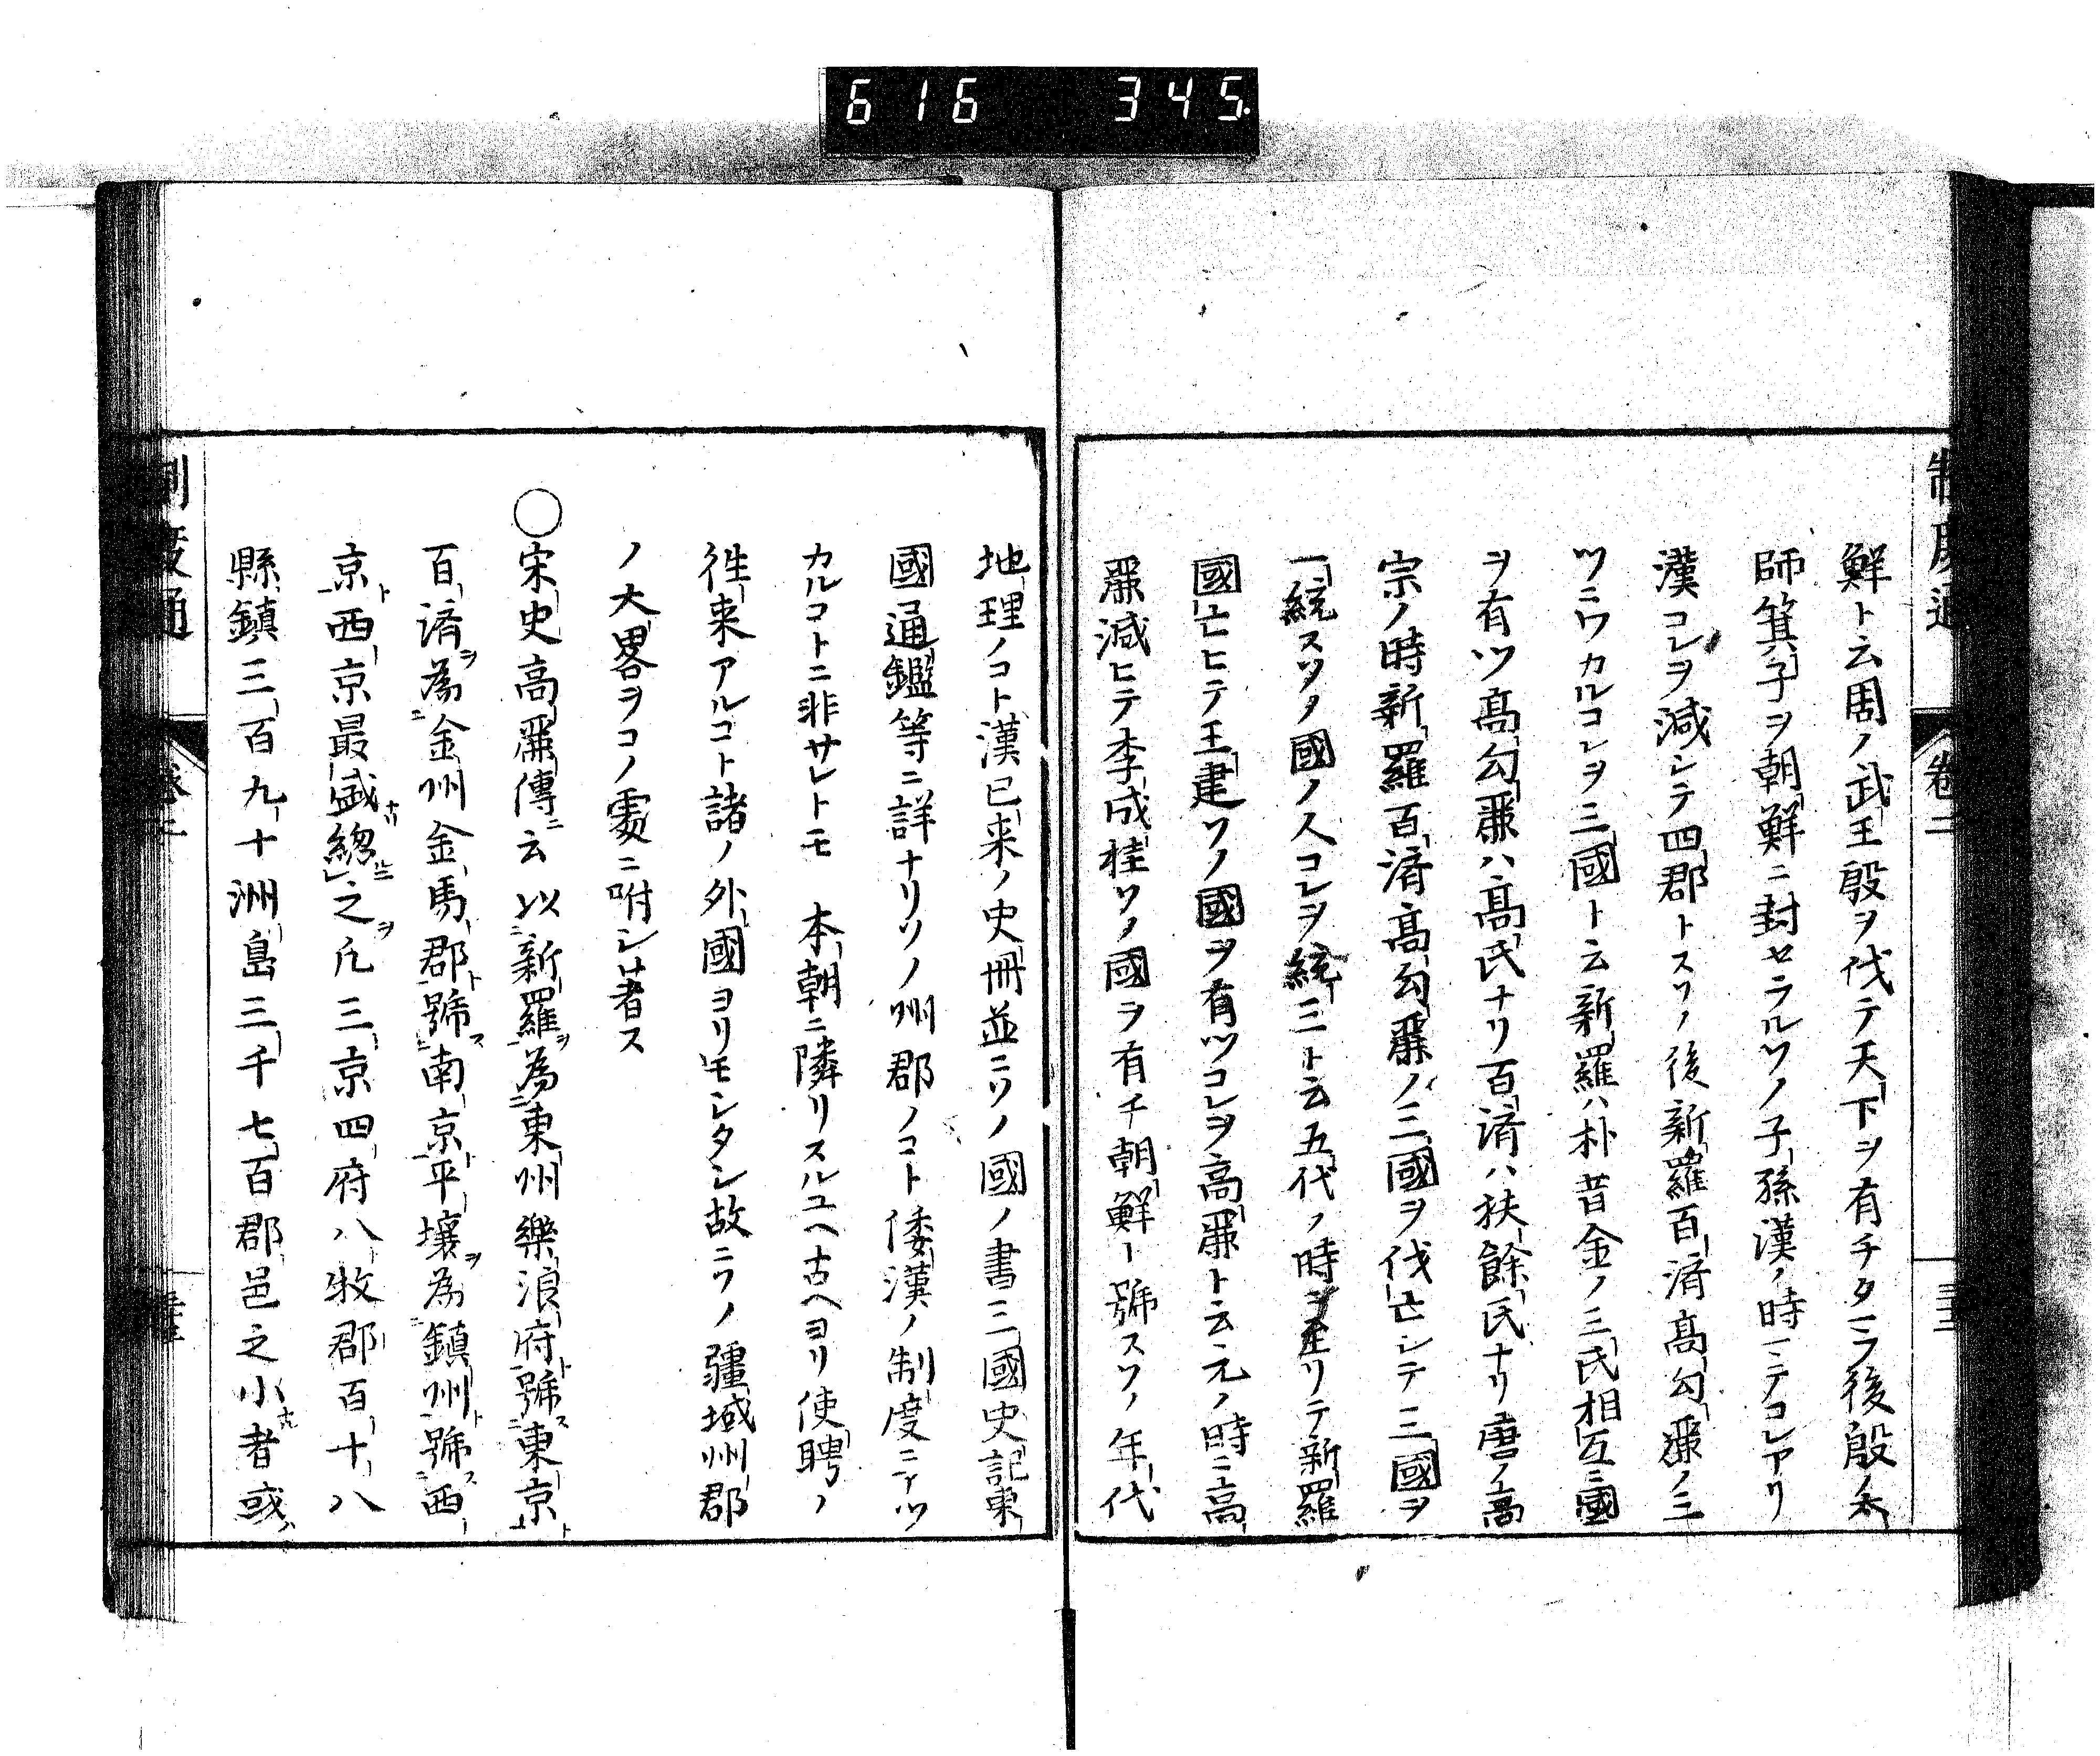 616 345
制度通 卷二
鮮ト云周ノ武王殷ヲ伐テ天下ヲ有チタマフ後殷ノ太
師箕子ヲ朝鮮ニ封セラルソノ子孫漢ノ時マテコレアリ
漢コレヲ滅シテ四郡トスソノ後新羅百濟髙勾麗ノ三
ツニワカルコレヲ三國ト云新羅ハ朴昔金ノ三氏相互ニ國
ヲ有ツ髙勾麗ハ髙氏ナリ百濟ハ扶餘氏ナリ唐ノ髙
宗ノ時新羅百濟髙勾麗ノ三國ヲ伐亡シテ三國ヲ
一統スソノ國ノ人コレヲ統三ト云五代ノ時ニ至リテ新羅
國亡ヒテ王建ソノ國ヲ有ツコレヲ高麗ト云元ノ時ニ高
麗滅ヒテ李成桂ソノ國ヲ有チ朝鮮ト號スソノ年代
地理ノコト漢已来ノ史冊並ニソノ國ノ書三國史記東
國通鑑等ニ詳ナリソノ州郡ノコト倭漢ノ制度ニアツ
カルコトニ非サレトモ 本朝ニ隣リスルユヘ古ヘヨリ使聘ノ
徃来アルコト諸ノ外國ヨリモシタシ故ニソノ疆域州郡
ノ大畧ヲコノ處ニ咐シ著ス
○宋史高麗傳ニ云以新羅為東州樂浪府號東京
百濟為金州金馬郡號南京平壤為鎮州號西
京西京最盛總之凡三京四府八牧郡百十八
縣鎮三百九十洲島三千七百郡邑之小者或
制度通 卷二